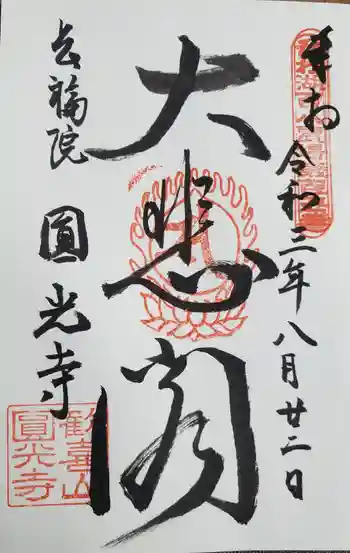 奉拝
令和三年八月廿二日
大悲閣
長福院
圓光寺
歓喜山
圓光寺